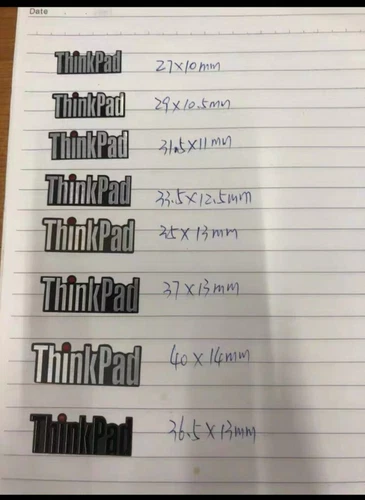 Date
ThinkPad 27×10mm
ThinkPad 29×10.5mm
ThinkPad 31.5×11mm
ThinkPad 33.5×12.5mm
ThinkPad 35×13mm
ThinkPad 37×13mm
ThinkPad 40×14mm
ThinkPad 36.5×13mm